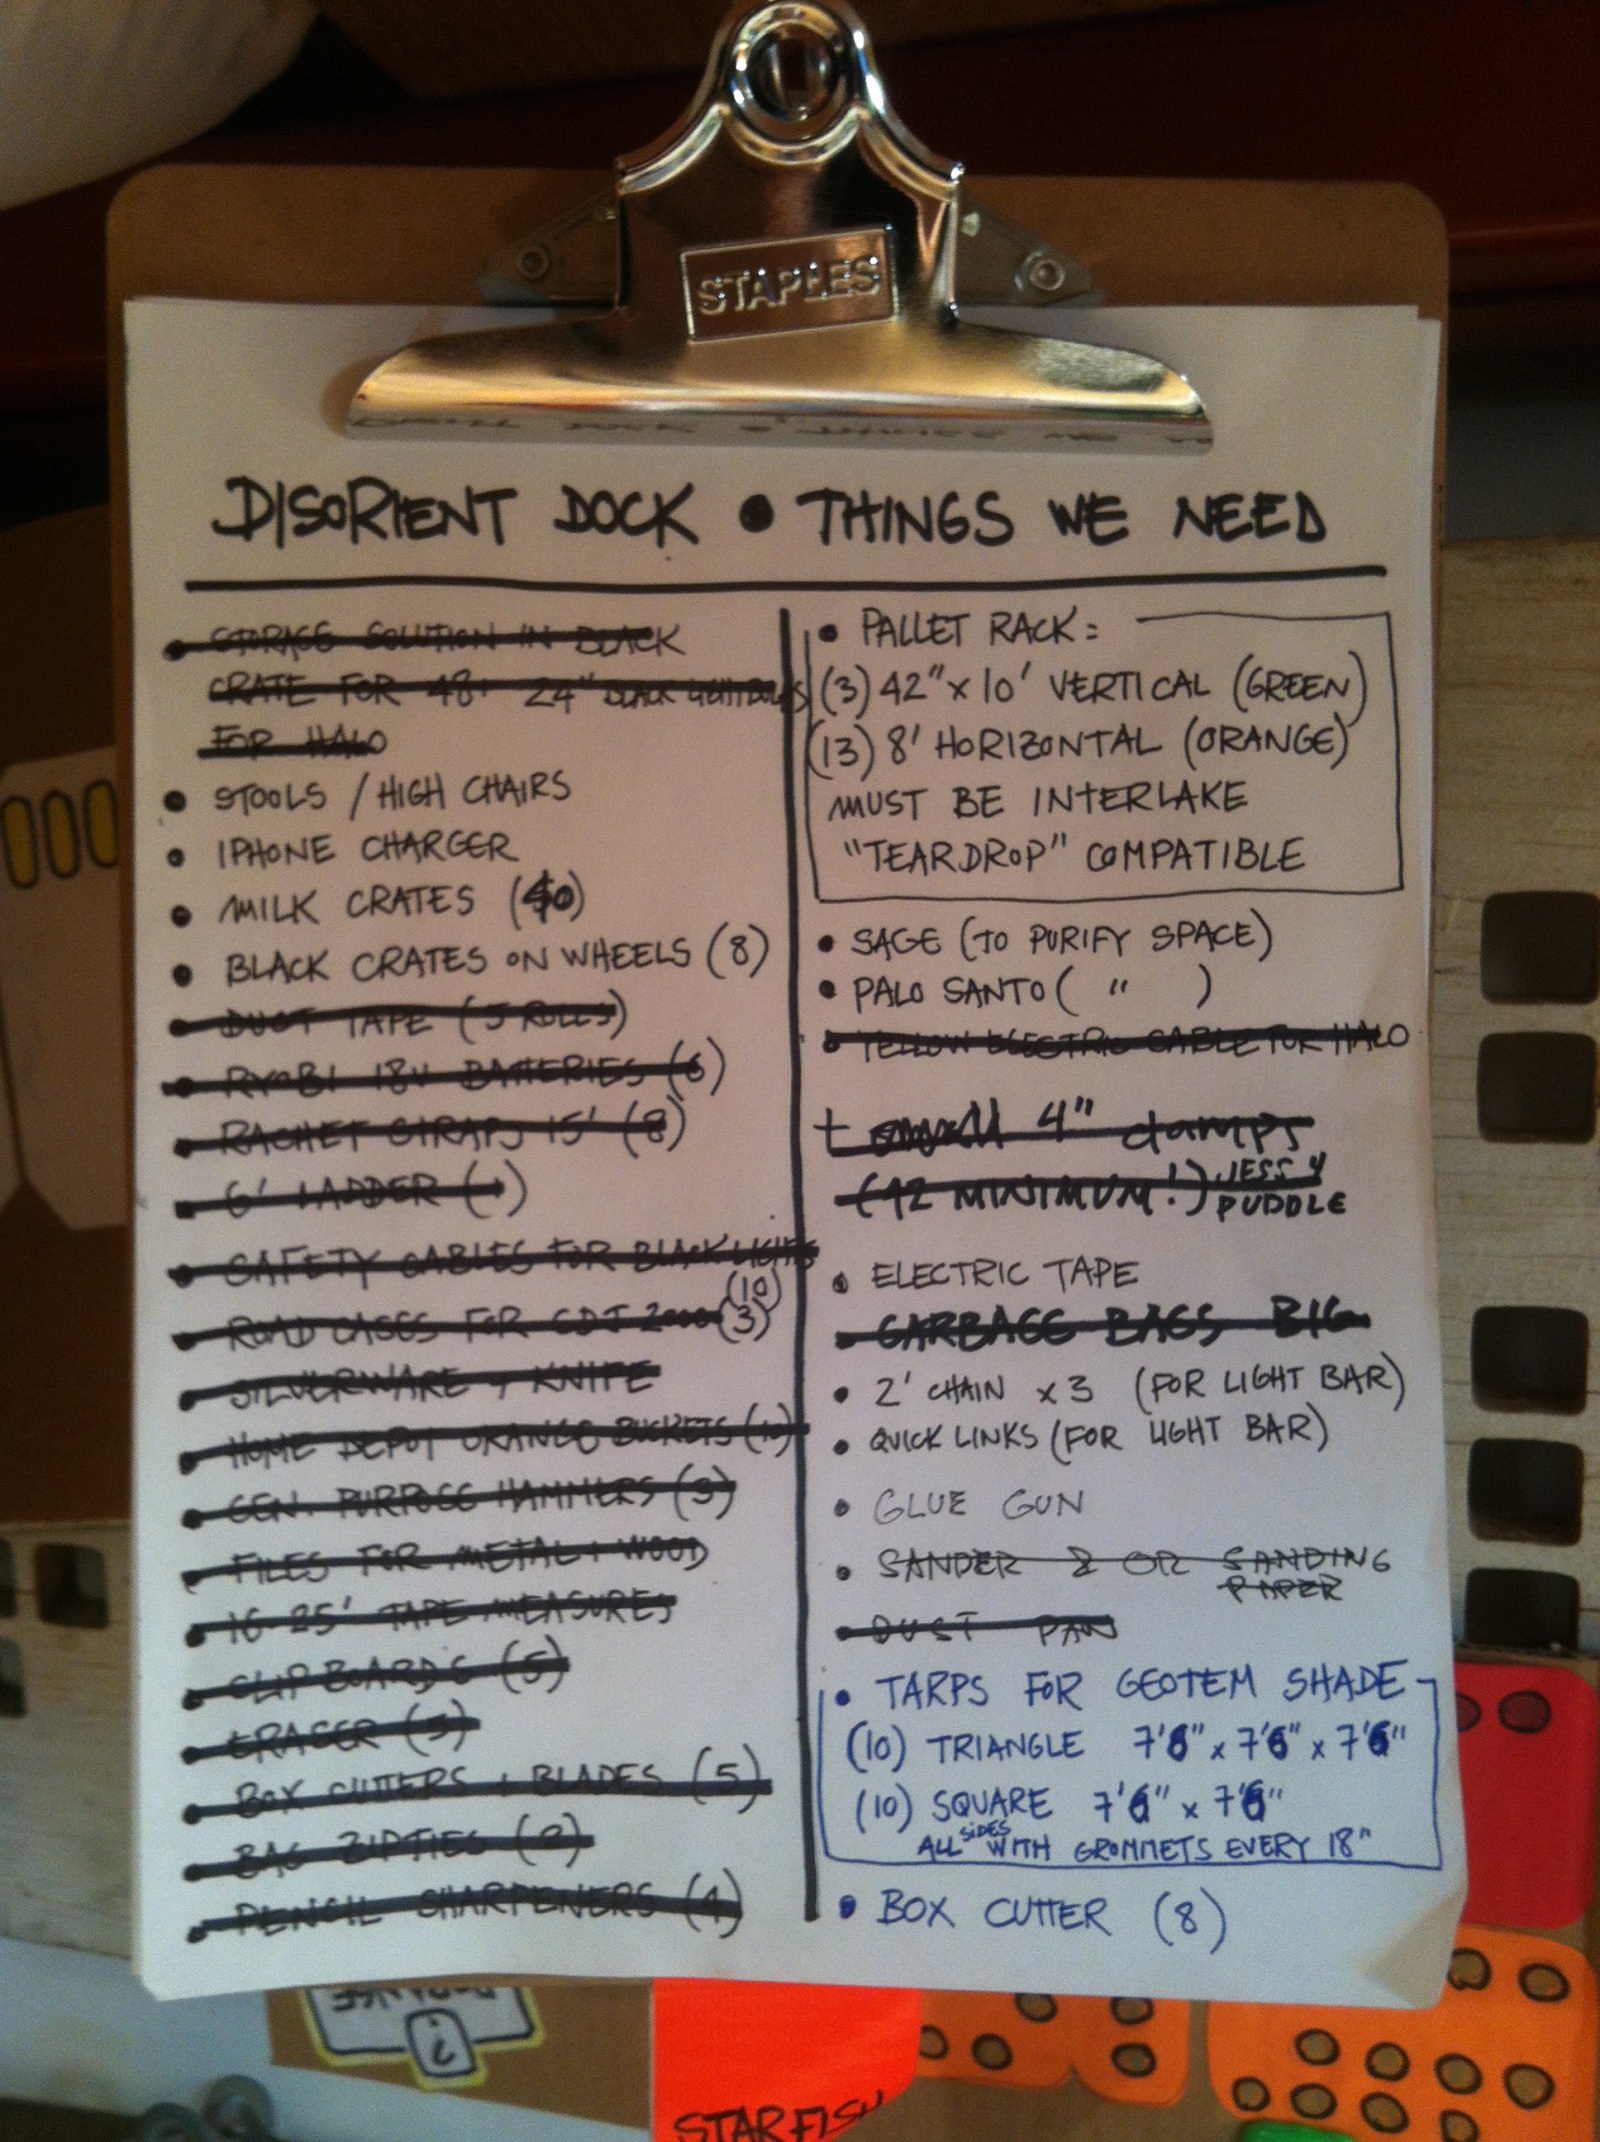 STAPLES
DISORIENT DOCK • THINGS WE NEED
• STORAGE SOLUTION IN BLACK
CRATE FOR 48" 24" BLACK LIGHT BULBS
FOR HALO
• STOOLS / HIGH CHAIRS
• IPHONE CHARGER
• MILK CRATES (40)
• BLACK CRATES ON WHEELS (8)
• DUCT TAPE (5 ROLLS)
• RYOBI 18V BATTERIES (6)
• RACHET STRAPS 15' (8)
• 6' LADDER (1)
• SAFETY CABLES FOR BLACK LIGHTS
(10)
• ROAD CASES FOR CDJ 2000 (3)
• SILVERWARE + KNIFE
• HOME DEPOT ORANGE BUCKETS (10)
• GEN. PURPOSE HAMMERS (3)
• FILES FOR METAL + WOOD
• 16-25' TAPE MEASURES
• CLIPBOARDS (5)
• ERASER (3)
• BOX CUTTERS + BLADES (5)
• BAG ZIPTIES (2)
• PENCIL SHARPENERS (4)
• PALLET RACK:
(3) 42" x 10' VERTICAL (GREEN)
(13) 8' HORIZONTAL (ORANGE)
MUST BE INTERLAKE
"TEARDROP" COMPATIBLE
• SAGE (TO PURIFY SPACE)
• PALO SANTO ( " )
• YELLOW ELECTRIC CABLE FOR HALO
+ small 4" clamps
(12 MINIMUM!) JESSY
PUDDLE
• ELECTRIC TAPE
• GARBAGE BAGS BIG
• 2' CHAIN x 3 (FOR LIGHT BAR)
• QUICK LINKS (FOR LIGHT BAR)
• GLUE GUN
• SANDER & OR SANDING
PAPER
• DUST PAN
• TARPS FOR GEOTEM SHADE
(10) TRIANGLE 7'6" x 7'6" x 7'6"
(10) SQUARE 7'6" x 7'6"
ALL SIDES WITH GROMMETS EVERY 18"
• BOX CUTTER (8)
STARFISH